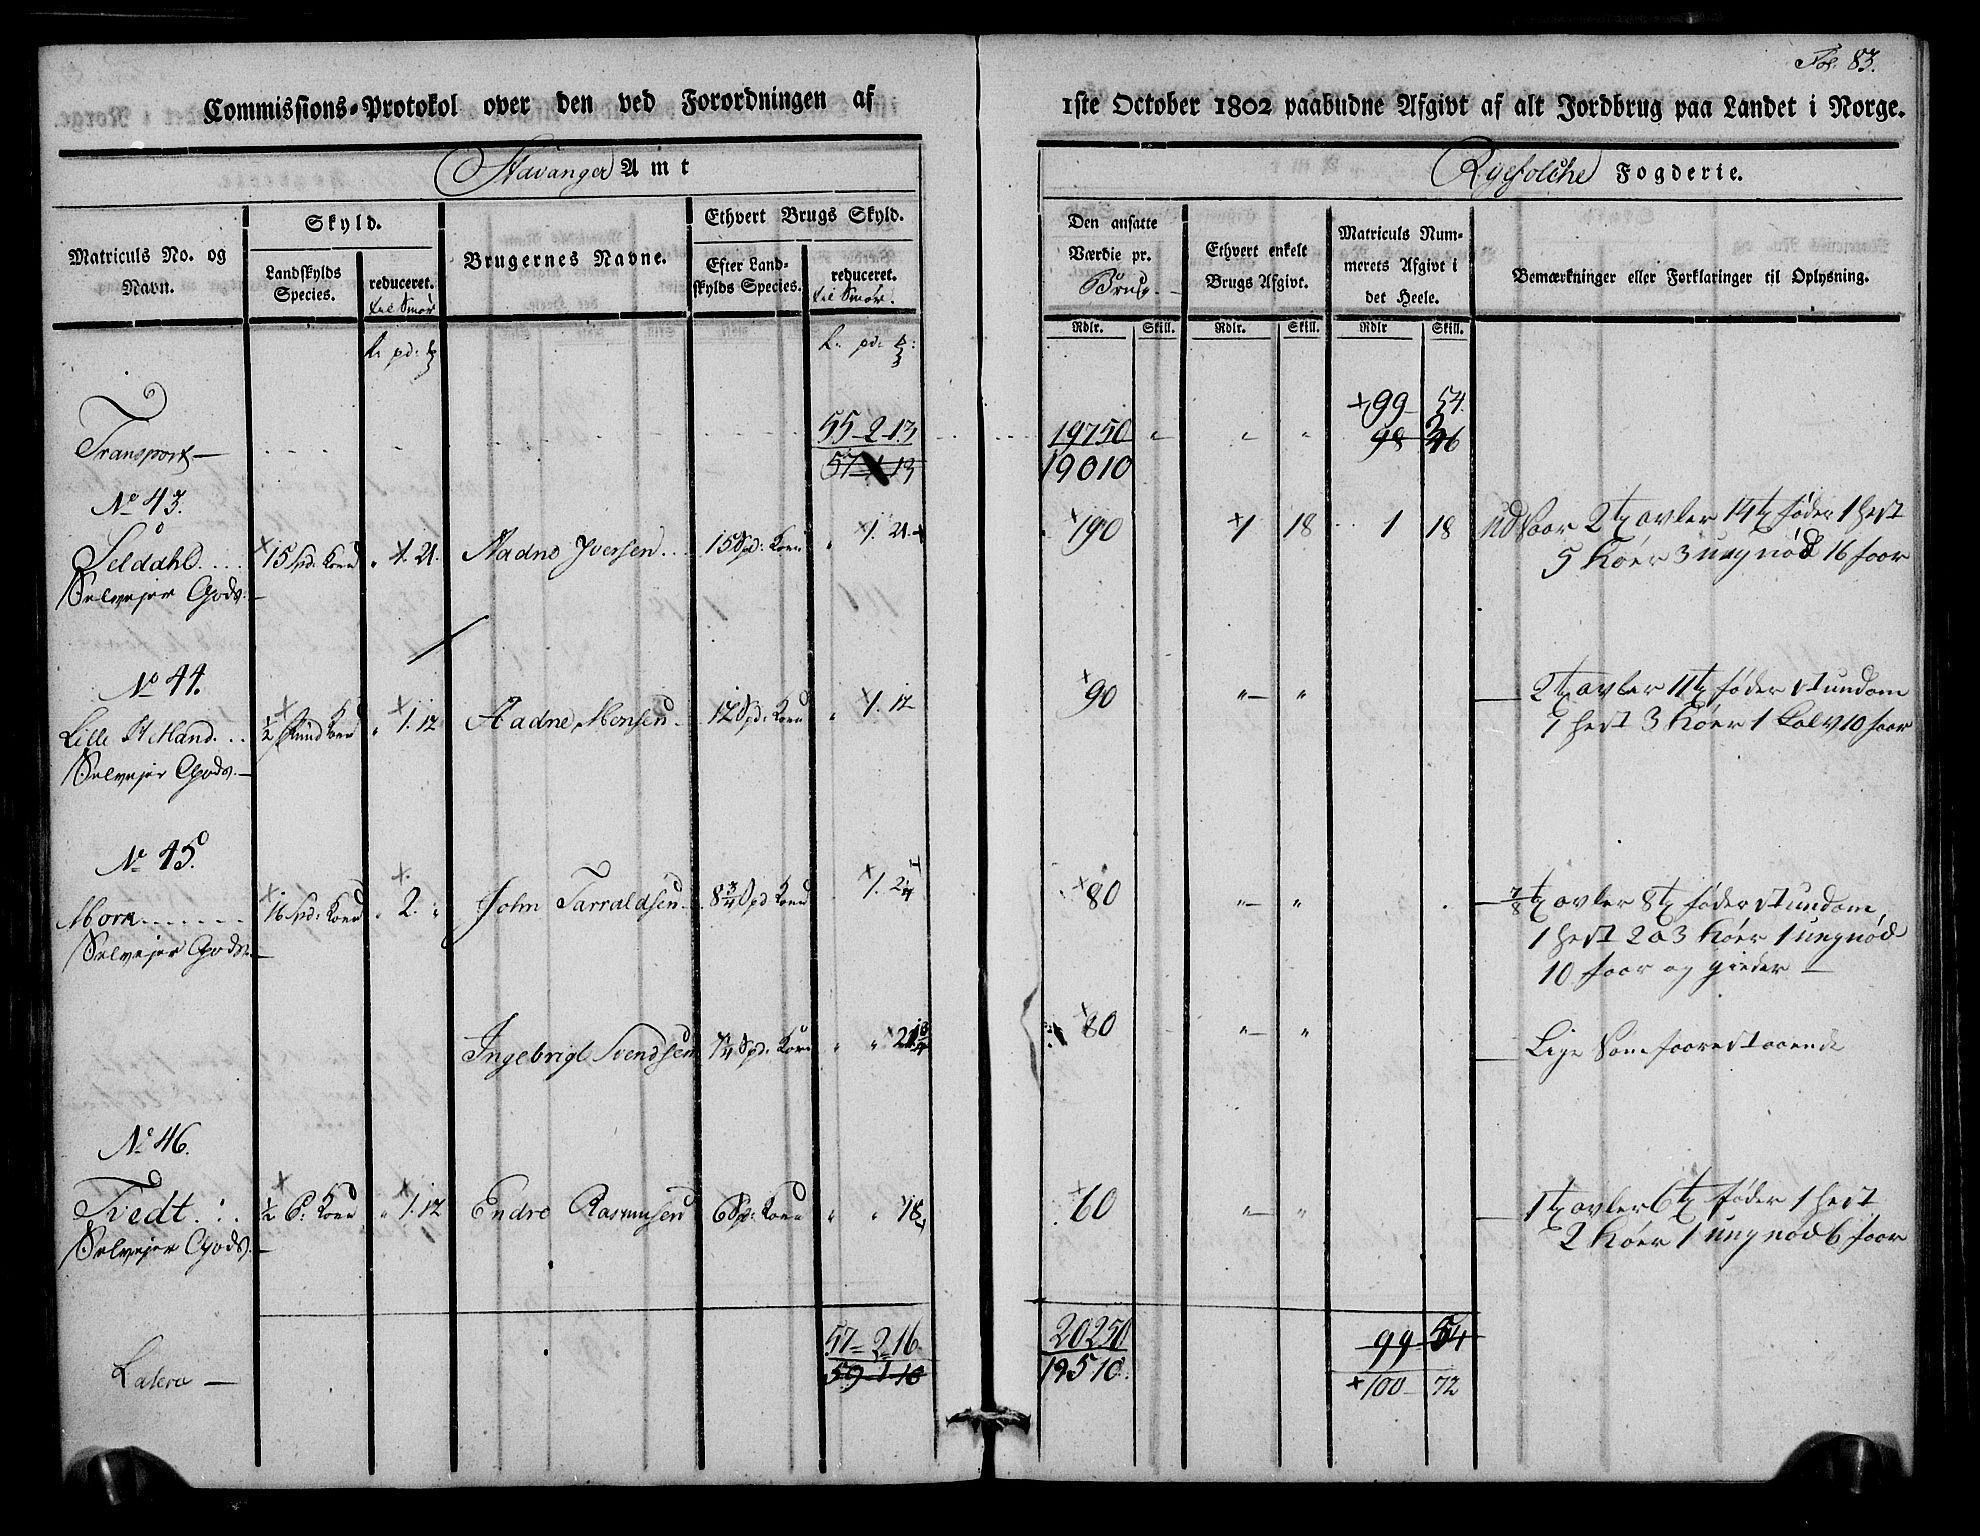 Fol. 83.
Commissions-Protokol over den ved Forordningen af 1ste October 1802 paabudne Afgivt af alt Jordbrug paa Landet i Norge.
Stavanger Amt
Ryefolche Fogderie.
Matriculs No. og Navn.
Skyld.
Landskylds Species.
reduceret. til Smør
Brugernes Navne.
Ethvert Brugs Skyld.
Efter Landskylds Species.
reduceret. til Smør.
Den ansatte Værdie pr. Brug.
Ethvert enkelt Brugs Afgivt.
Matriculs Nummerets Afgivt i det Heele.
Bemærkninger eller Forklaringer til Oplysning.
Rdlr. Skill. Rdlr. Skill. Rdlr Skill.
L. pd: L. pd:
+99 54.
Transport — 55-2-13 19750 " " " 98
57 13 19010
No 43.
Seldahl +15 Spd: Korn " 1. 21. Aadne Iversen 15 Spd: Korn " +1. 21 +190 +1 18 1 18 Udsaar 2 tr avler 14 tr føder 1 hest
Selvejer Gods — 5 Køer 3 ungnød 16 faar
No 44.
Lille Hetland ½ Pund Korn " +1. 12 Aadne Monsen 12 Spd: Korn " +1. 12 +90 " " 2 tr avler 11 tr føder stundom
Selvejer Gods — 1 hest 3 Køer 1 Kalv 10 faar
No 45.
Morn +16 Spd: Korn " 2. " John Tarraldsen 8¾ Spd Korn +1. +80 " " 7/8 tr avler 8 tr føder stundom
Selvejer Gods — 1 hest 2 a 3 Køer 1 ungnød
10 faar og gieder —
Ingebrigt Svendsen 7¼ Spd: Korn " " +80 " " Lige Som foorestaaende
No 46.
Tvedt ½ P: Korn " +1. 12 Endre Rasmusen 6 Spd: Korn " " 18 +60 " " 1 tr avler 6 tr føder 1 hest
Selvejer Gods — 2 Køer 1 ungnød 6 faar
57 - 2 - 16 20250 99 54
Latera — 59 1 10 19510 +100 72